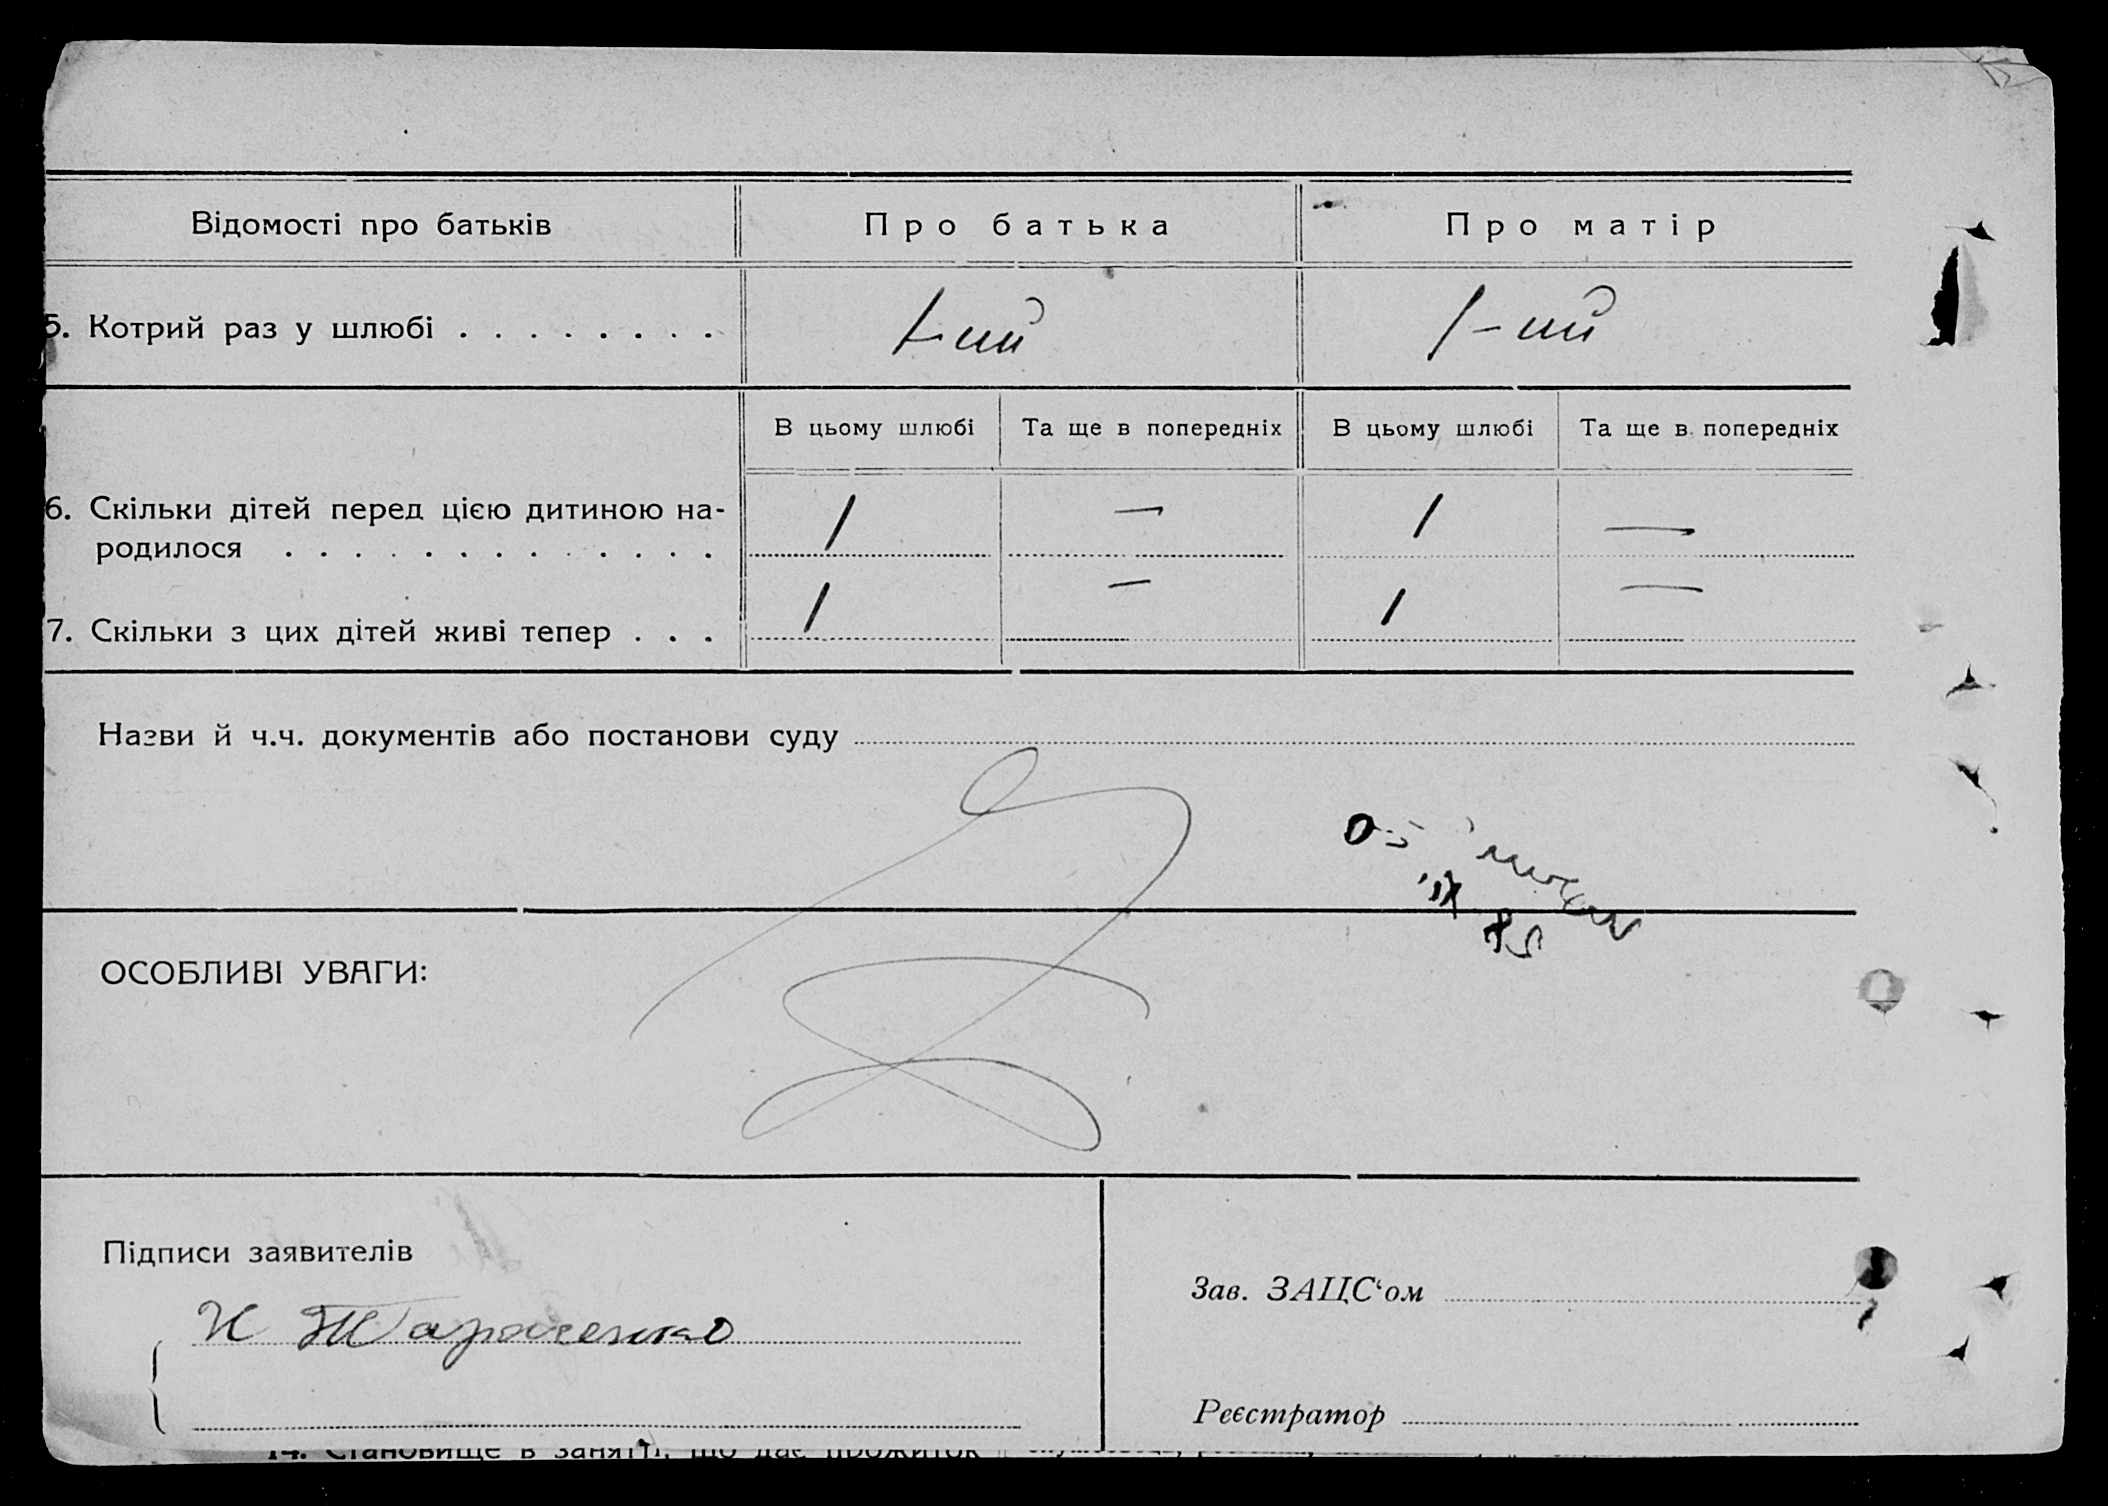 Відомості про батьків Про батька Про матір
5. Котрий раз у шлюбі . . . . . . . . 1-ий 1-ий
В цьому шлюбі Та ще в попередніх В цьому шлюбі Та ще в попередніх
6. Скільки дітей перед цією дитиною на-
родилося . . . . . . . . . . . . . 1 — 1 —
7. Скільки з цих дітей живі тепер . . . 1 — 1 —
Назви й ч.ч. документів або постанови суду
ОСОБЛИВІ УВАГИ:
Підписи заявителів
Зав. ЗАЦС‘ом
Реєстратор
14. Становище в занятті, що дає прожиток